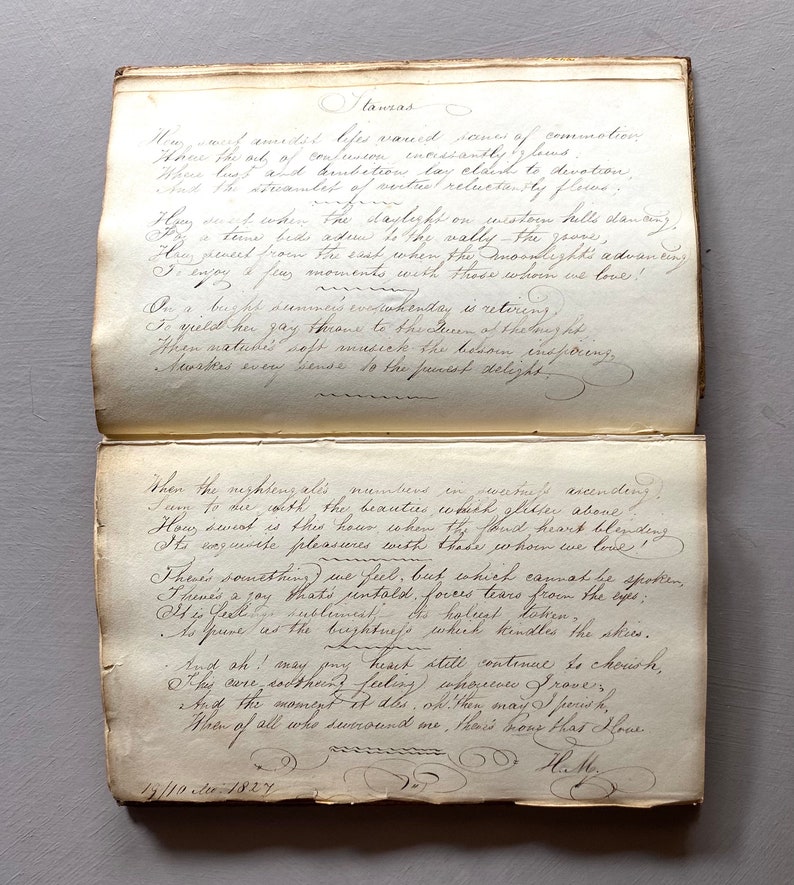 Stanzas
How sweet amidst lifes varied scenes of commotion,
Where the art of confusion incessantly glows:
Where lust and ambition lay claim to devotion,
And the streamlet of virtue reluctantly flows.
How sweet when the daylight on western hills dancing,
For a time bids adieu to the vally - the grove,
How sweet from the east when the moonlight's advancing
To enjoy a few moments with those whom we love!
On a bright summer's eve, when day is retiring,
To yield her gay throne to the Queen of the night
When nature's soft musick the bosom inspiring,
Awakes every sense to the purest delight.
When the nightengale's numbers in sweetness ascending,
Seem to vie with the beauties which glitter above:
How sweet is this hour when the fond heart blending
Its exquisite pleasures with those whom we love!
There's something we feel, but which cannot be spoken,
There's a joy that's untold, forces tears from the eyes:
It is feelings sublimest, its holiest token,
As pure as the brightness which kindles the skies.
And oh! may my heart still continue to cherish,
This feeling wherever I rove,
And the moment it dies, oh! then may I perish,
When of all who surround me, there's none that I love
H. M.
19/10 1827